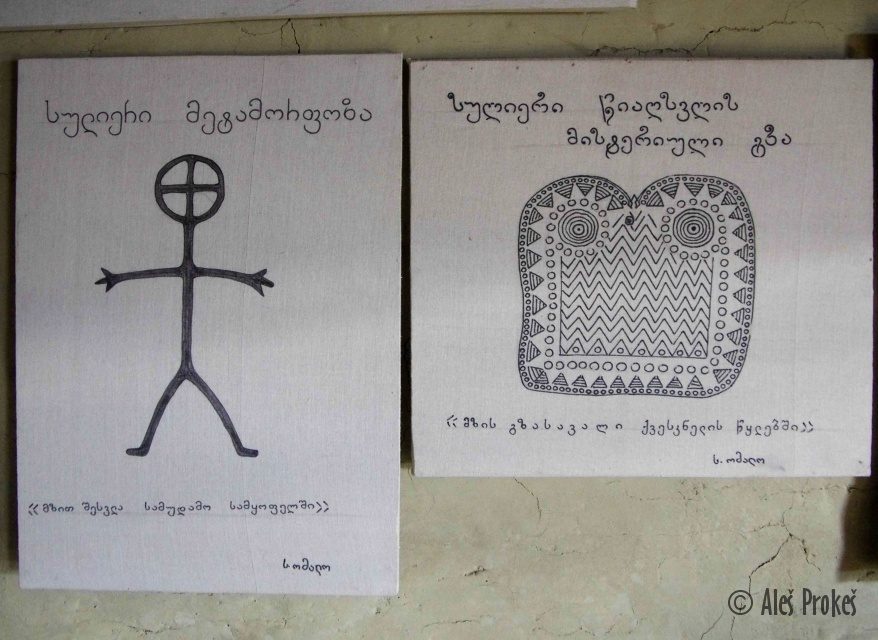 სულიერი მეტამორფოზა
«მზით შესვლა სამუდამო სამყოფელში»
ს ომალო
სულიერი წიაღსვლის
მისტერიული გზა
«მზის გზასავალი ქვესკნელის წყლებში»
ს. ომალო
© Aleš Prokeš